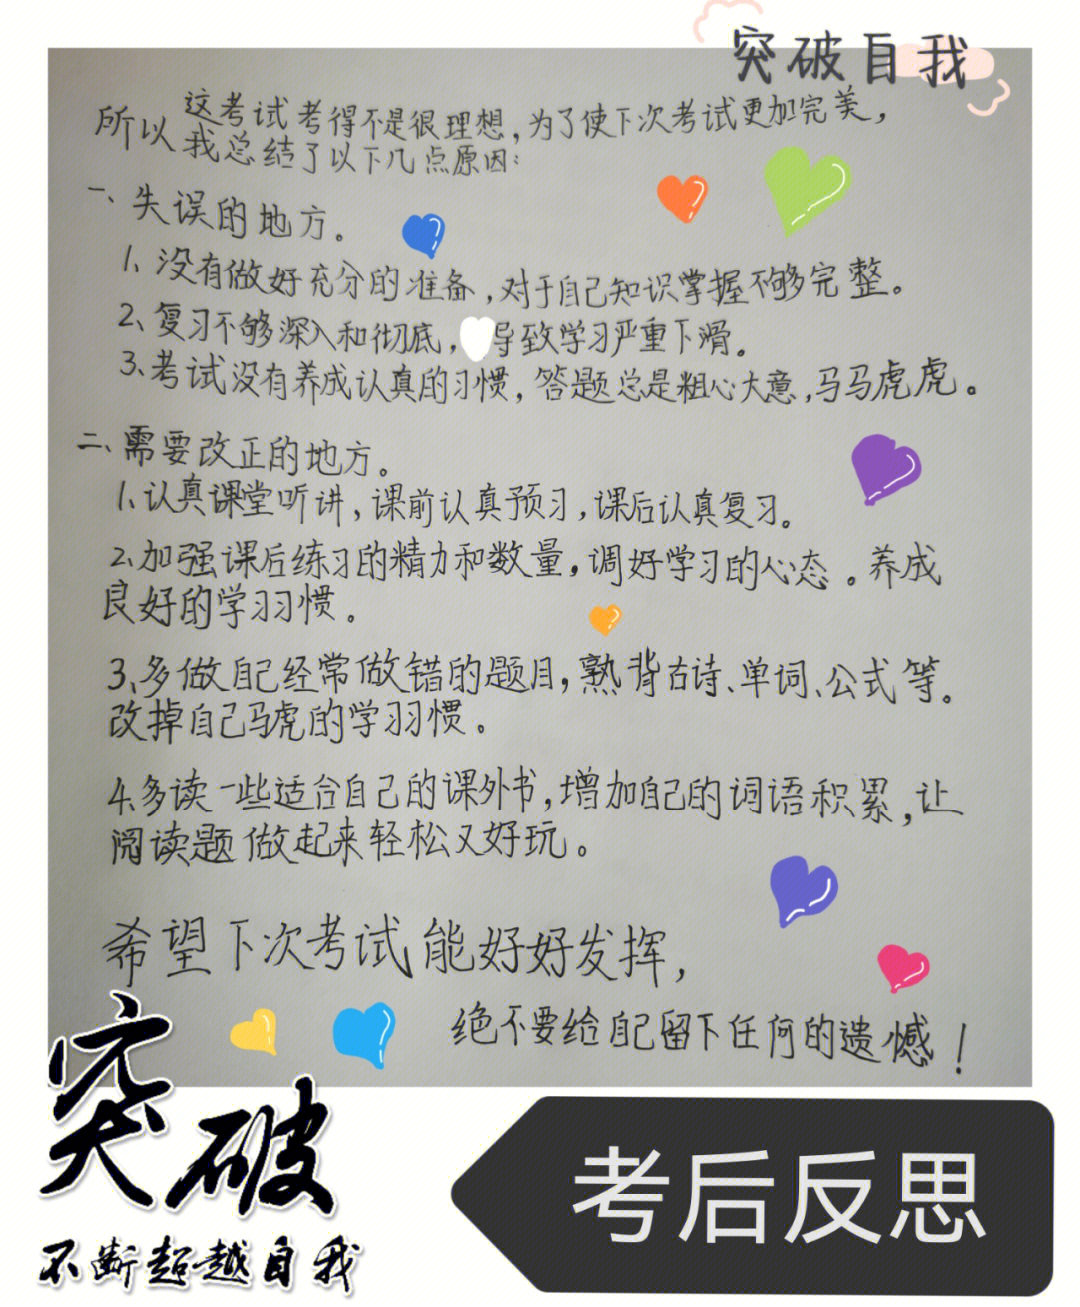 突破自我
所以这考试考得不是很理想，为了使下次考试更加完美，
我总结了以下几点原因：
一、失误的地方。
1、没有做好充分的准备，对于自己知识掌握不够完整。
2、复习不够深入和彻底，导致学习严重下滑。
3、考试没有养成认真的习惯，答题总是粗心大意，马马虎虎。
二、需要改正的地方。
1、认真课堂听讲，课前认真预习，课后认真复习。
2、加强课后练习的精力和数量，调好学习的心态。养成
良好的学习习惯。
3、多做自己经常做错的题目，熟背古诗、单词、公式等。
改掉自己马虎的学习习惯。
4、多读一些适合自己的课外书，增加自己的词语积累，让
阅读题做起来轻松又好玩。
希望下次考试能好好发挥，
绝不要给自己留下任何的遗憾！
突破
不断超越自我
考后反思